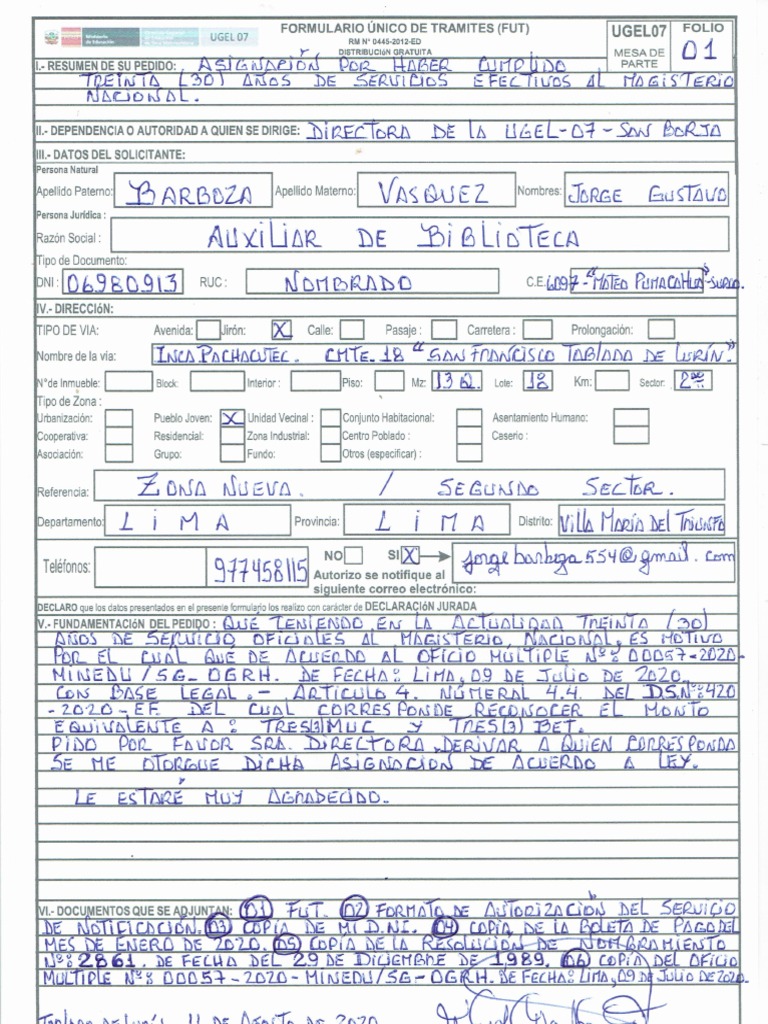 PERÚ Ministerio de Educación UGEL07
FORMULARIO ÚNICO DE TRAMITES (FUT)
RM N° 0445-2012-ED
DISTRIBUCIóN GRATUITA
UGEL07
MESA DE PARTE
FOLIO
01
I.- RESUMEN DE SU PEDIDO: ASIGNACIÓN POR HABER CUMPLIDO
TREINTA (30) AÑOS DE SERVICIOS EFECTIVOS AL MAGISTERIO
NACIONAL.
II.- DEPENDENCIA O AUTORIDAD A QUIEN SE DIRIGE: DIRECTORA DE LA UGEL-07-SAN BORJA
III.- DATOS DEL SOLICITANTE:
Persona Natural
Apellido Paterno: BARBOZA Apellido Materno: VASQUEZ Nombres: JORGE GUSTAVO
Persona Jurídica :
Razón Social : AUXILIAR DE BIBLIOTECA
Tipo de Documento:
DNI : 06980913 RUC : NOMBRADO C.E. 6097-"MATEO PUMACAHUA"-SURCO.
IV.- DIRECCIÓn:
TIPO DE VIA: Avenida: Jirón: X Calle: Pasaje : Carretera : Prolongación:
Nombre de la vía: INCA PACHACUTEC. CMTE. 18 "SAN FRANCISCO TABLADA DE LURÍN".
N°de Inmueble: Block: Interior : Piso: Mz: 13Q. Lote: 18 Km: Sector: 2do
Tipo de Zona :
Urbanización: Pueblo Joven: X Unidad Vecinal : Conjunto Habitacional: Asentamiento Humano:
Cooperativa: Residencial: Zona Industrial: Centro Poblado : Caserio :
Asociación: Grupo: Fundo: Otros (especificar) :
Referencia: ZONA NUEVA. / SEGUNDO SECTOR.
Departamento: LIMA Provincia: LIMA Distrito: VILLA MARÍA DEL TRIUNFO
Teléfonos: 977458115 NO SI X jorgebarboza554@gmail.com
Autorizo se notifique al
siguiente correo electrónico:
DECLARO que los datos presentados en el presente formulario los realizo con carácter de DECLARACIÓn JURADA
V.- FUNDAMENTACIÓn DEL PEDIDO: QUE TENIENDO EN LA ACTUALIDAD TREINTA (30)
AÑOS DE SERVICIO OFICIALES AL MAGISTERIO, NACIONAL, ES MOTIVO
POR EL CUAL QUE DE ACUERDO AL OFICIO MÚLTIPLE Nº: 00057-2020-
MINEDU/SG-OGRH. DE FECHA: LIMA, 09 DE JULIO DE 2020.
CON BASE LEGAL.- ARTICULO 4. NUMERAL 4.4. DEL DS.Nº:420
-2020-EF. DEL CUAL CORRESPONDE RECONOCER EL MONTO
EQUIVALENTE A: TRES(3)MUC Y TRES(3) BET.
PIDO POR FAVOR SRA. DIRECTORA, DERIVAR A QUIEN CORRESPONDA
SE ME OTORGUE DICHA ASIGNACIÓN DE ACUERDO A LEY.
LE ESTARÉ MUY AGRADECIDO.
VI.- DOCUMENTOS QUE SE ADJUNTAN: 01 FUT. 02 FORMATO DE AUTORIZACIÓN DEL SERVICIO
DE NOTIFICACIÓN. 03 COPIA DE MI D.NI. 04 COPIA DE LA BOLETA DE PAGO DEL
MES DE ENERO DE 2020. 05 COPIA DE LA RESOLUCIÓN DE NOMBRAMIENTO
Nº: 2861. DE FECHA DEL 29 DE DICIEMBRE DE 1989. 06 COPIA DEL OFICIO
MULTIPLE Nº: 00057-2020-MINEDU/SG-OGRH. DE FECHA: LIMA, 09 DE JULIO DE 2020.
11 DE AGOSTO DE 2020